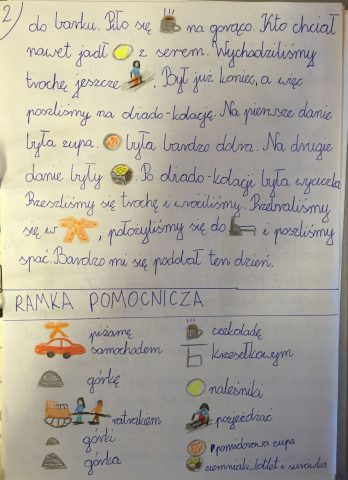 2)
do barku. Piło się na gorąco. Kto chciał
nawet jadł z serem. Wychodziliśmy
trochę jeszcze. Był już koniec, a więc
poszliśmy na obiado-kolację. Na pierwsze danie
była zupa. była bardzo dobra. Na drugie
danie były. Po obiado-kolacji była wycieczka.
Przeszliśmy się trochę i wróciliśmy. Przebraliśmy
się w, położyliśmy się do i poszliśmy
spać. Bardzo mi się podobał ten dzień.
RAMKA POMOCNICZA
piżamę
samochodem
górkę
ratrakiem
górki
górka
czekoladę
krzesełkowym
naleśniki
pozjeżdżać
pomidorowa zupa
ziemniaki, kotlet i surówka